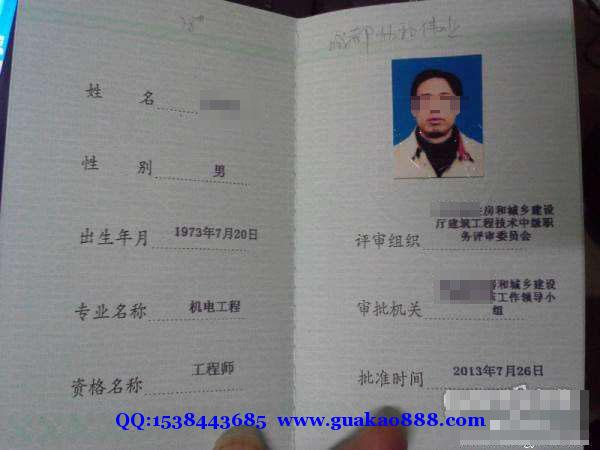 姓 名
性 别 男
出生年月 1973年7月20日
专业名称 机电工程
资格名称 工程师
评审组织 房和城乡建设
厅建筑工程技术中级职
务评审委员会
审批机关 房和城乡建设
工作领导小
组
批准时间 2013年7月26日
QQ:1538443685 www.guakao888.com